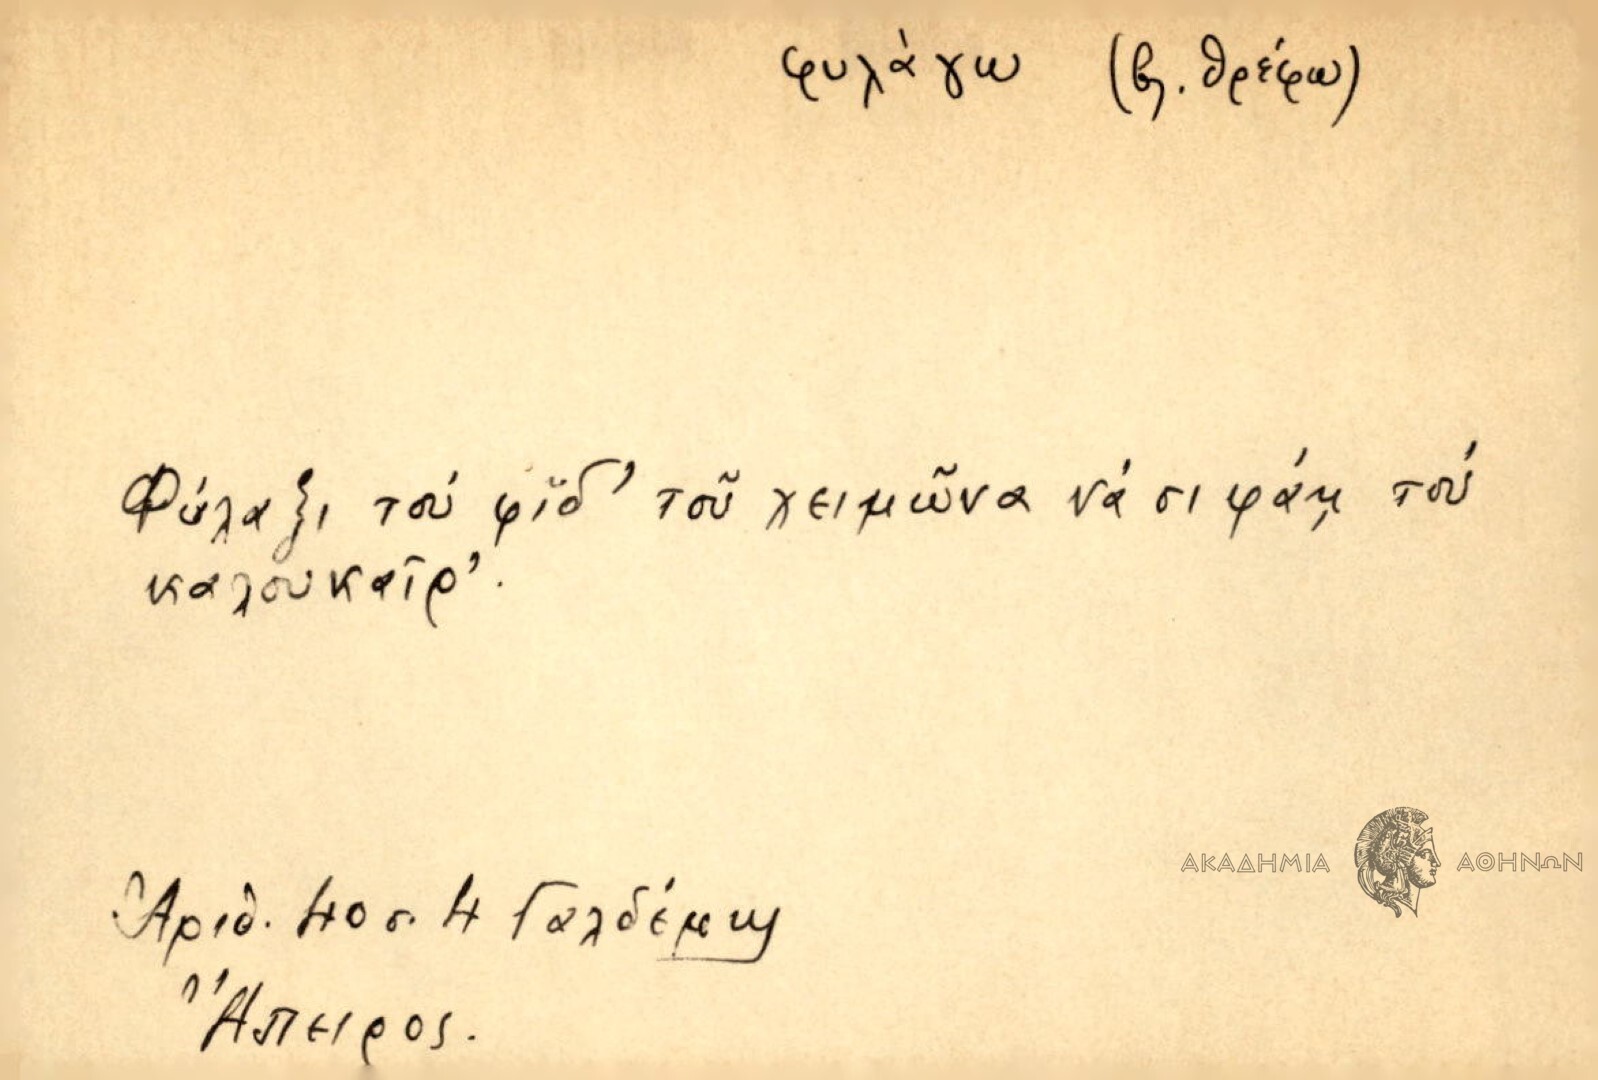 φυλάγω (βλ. θρέφω)
Φύλαξι τού φῖδ' τοῦ χειμῶνα νά σι φάῃ τού
καλουκαῖρ'.
Ἀριθ. 40 σ. 4 Γαλδέμης
Ἤπειρος.
ΑΚΑΔΗΜΙΑ ΑΘΗΝΩΝ